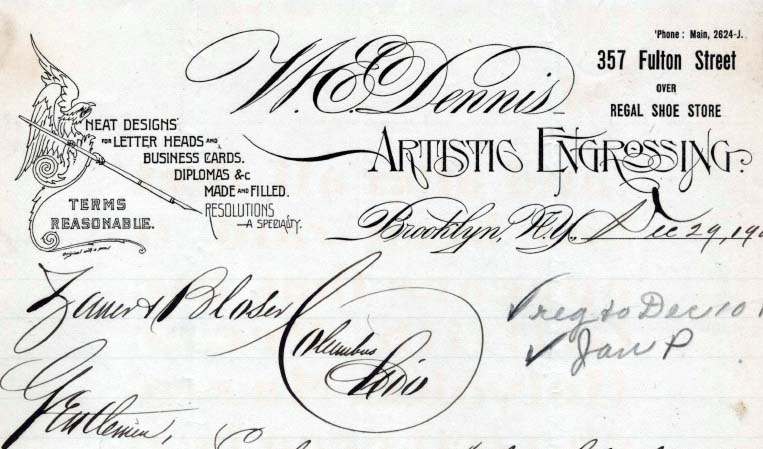 'Phone: Main, 2624-J.
W. E. Dennis
357 Fulton Street
OVER
REGAL SHOE STORE
NEAT DESIGNS
FOR LETTER HEADS AND
BUSINESS CARDS.
DIPLOMAS &c
MADE AND FILLED.
RESOLUTIONS
A SPECIALTY.
TERMS
REASONABLE.
ARTISTIC ENGROSSING.
Brooklyn, N.Y. Dec 29, 190
Zaner & Bloser
Columbus
Ohio
reg to Dec 10
Jan P
Gentlemen,